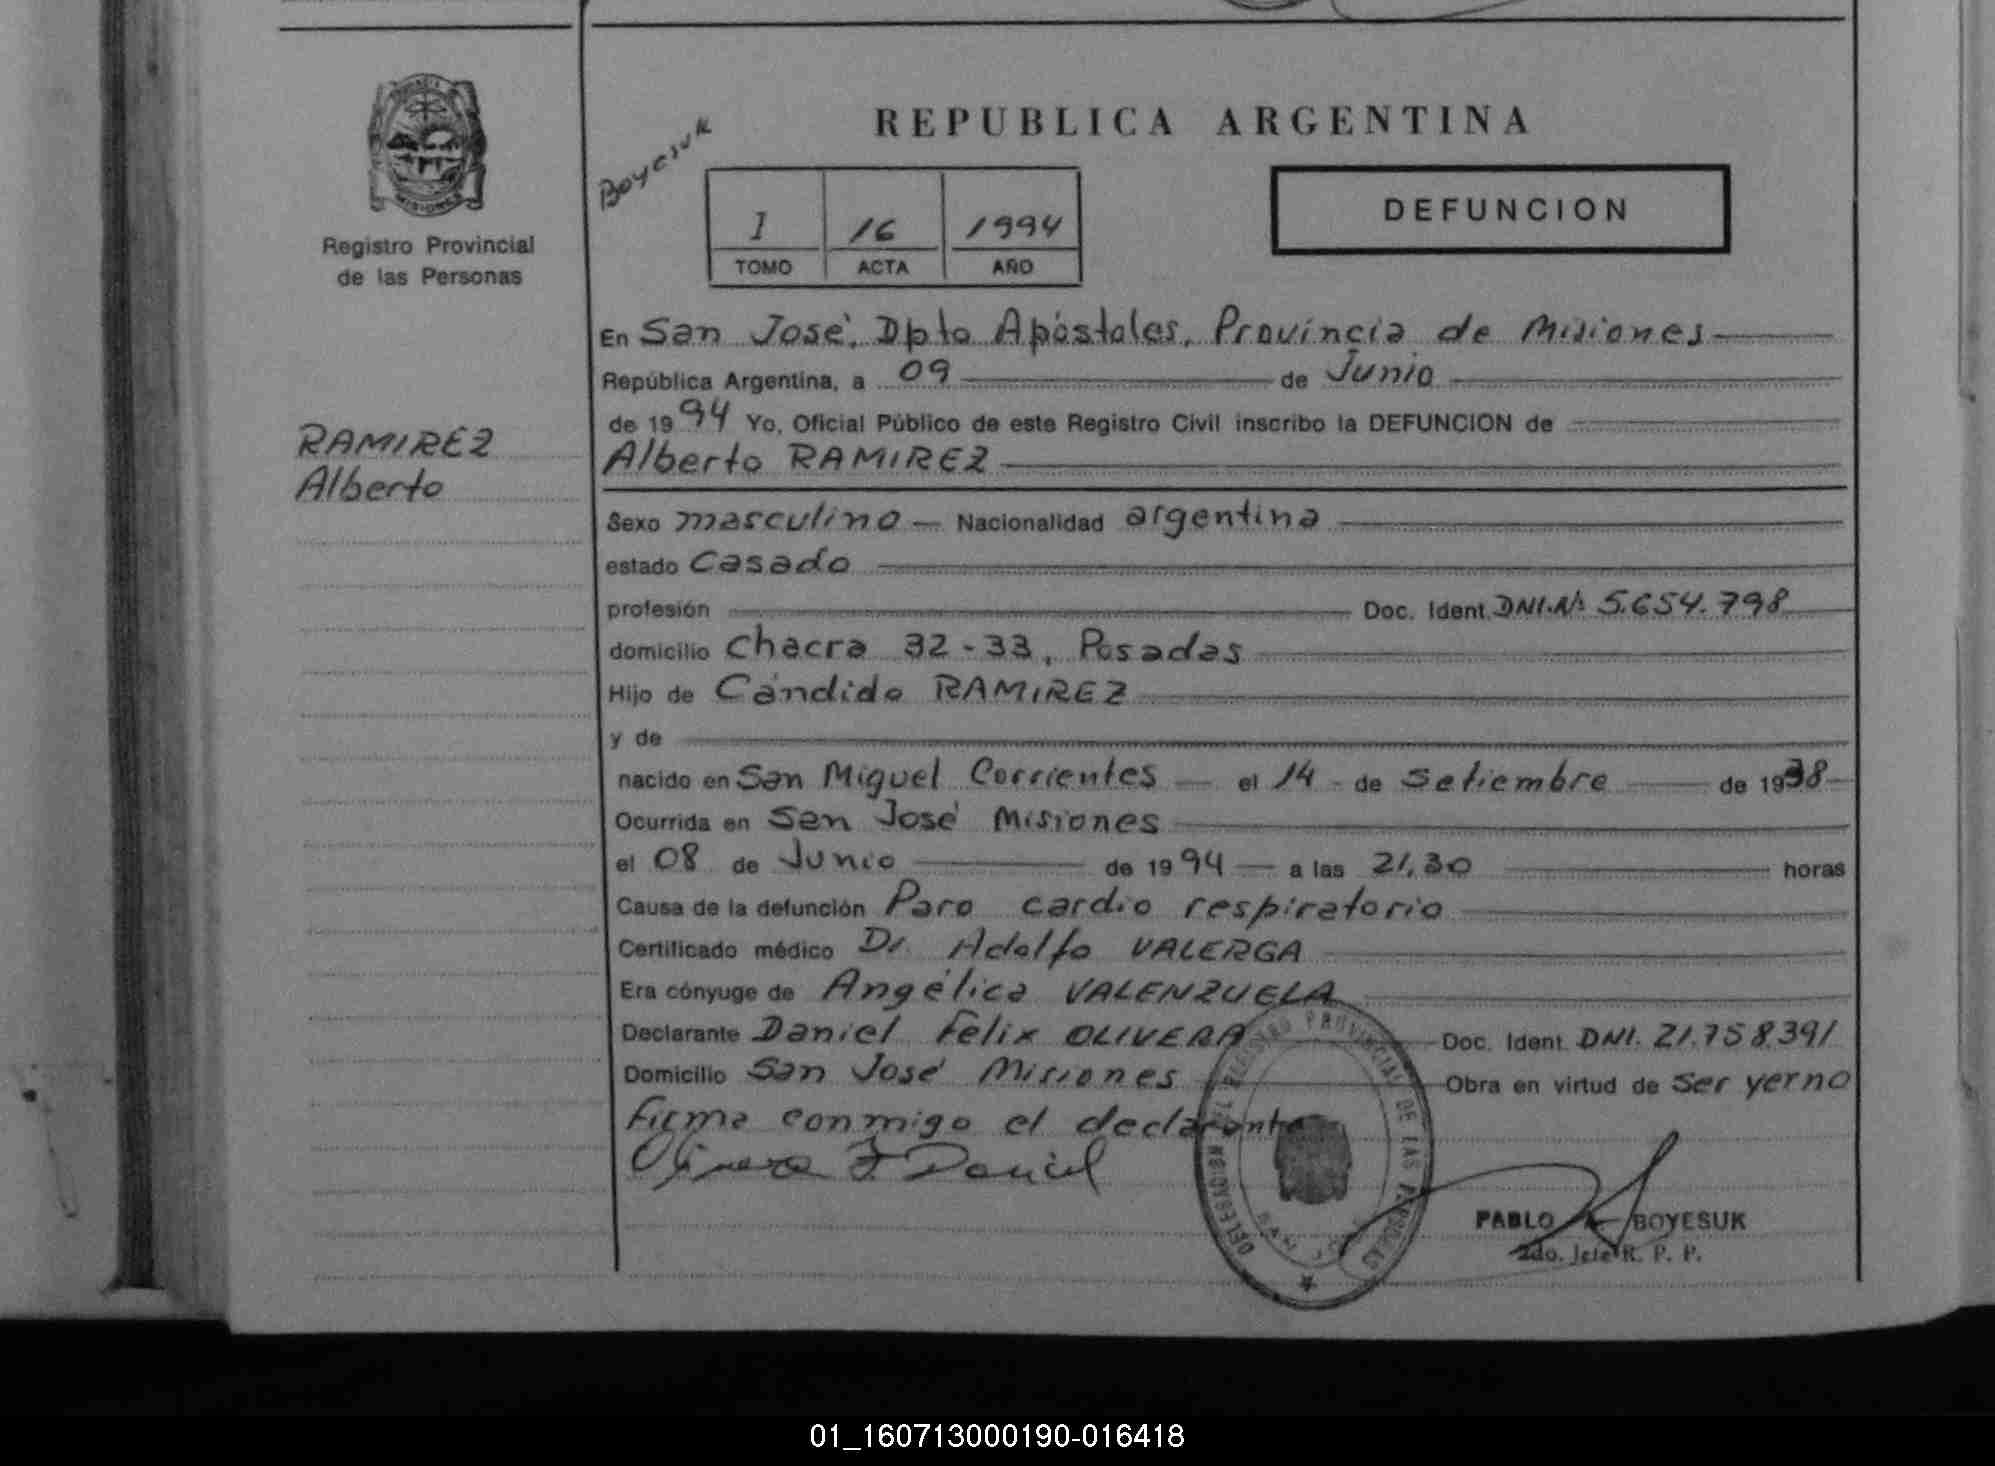 PROVINCIA
MISIONES
Registro Provincial
de las Personas
RAMIREZ
Alberto
Boyesuk
REPUBLICA ARGENTINA
I 16 1994
TOMO ACTA AÑO
DEFUNCION
En San José, Dpto Apóstoles, Provincia de Misiones
República Argentina, a 09 de Junio
de 1994 Yo, Oficial Público de este Registro Civil inscribo la DEFUNCION de
Alberto RAMIREZ
Sexo masculino Nacionalidad argentina
estado Casado
profesión Doc. Ident. DNI.Nº 5.654.798
domicilio Chacra 32-33, Posadas
Hijo de Cándido RAMIREZ
y de
nacido en San Miguel Corrientes el 14 de Setiembre de 1938
Ocurrida en San José Misiones
el 08 de Junio de 1994 a las 21,30 horas
Causa de la defunción Paro cardio respiratorio
Certificado médico Dr. Adolfo VALERGA
Era cónyuge de Angélica VALENZUELA
Declarante Daniel Félix OLIVERA Doc. Ident. DNI. 21.758.391
Domicilio San José Misiones Obra en virtud de ser yerno
Firma conmigo el declarante
Olivera F. Daniel
REGISTRO PROVINCIAL DE LAS PERSONAS
DELEGACION
SAN JOSE
PABLO BOYESUK
2do. Jefe R. P. P.
01_160713000190-016418